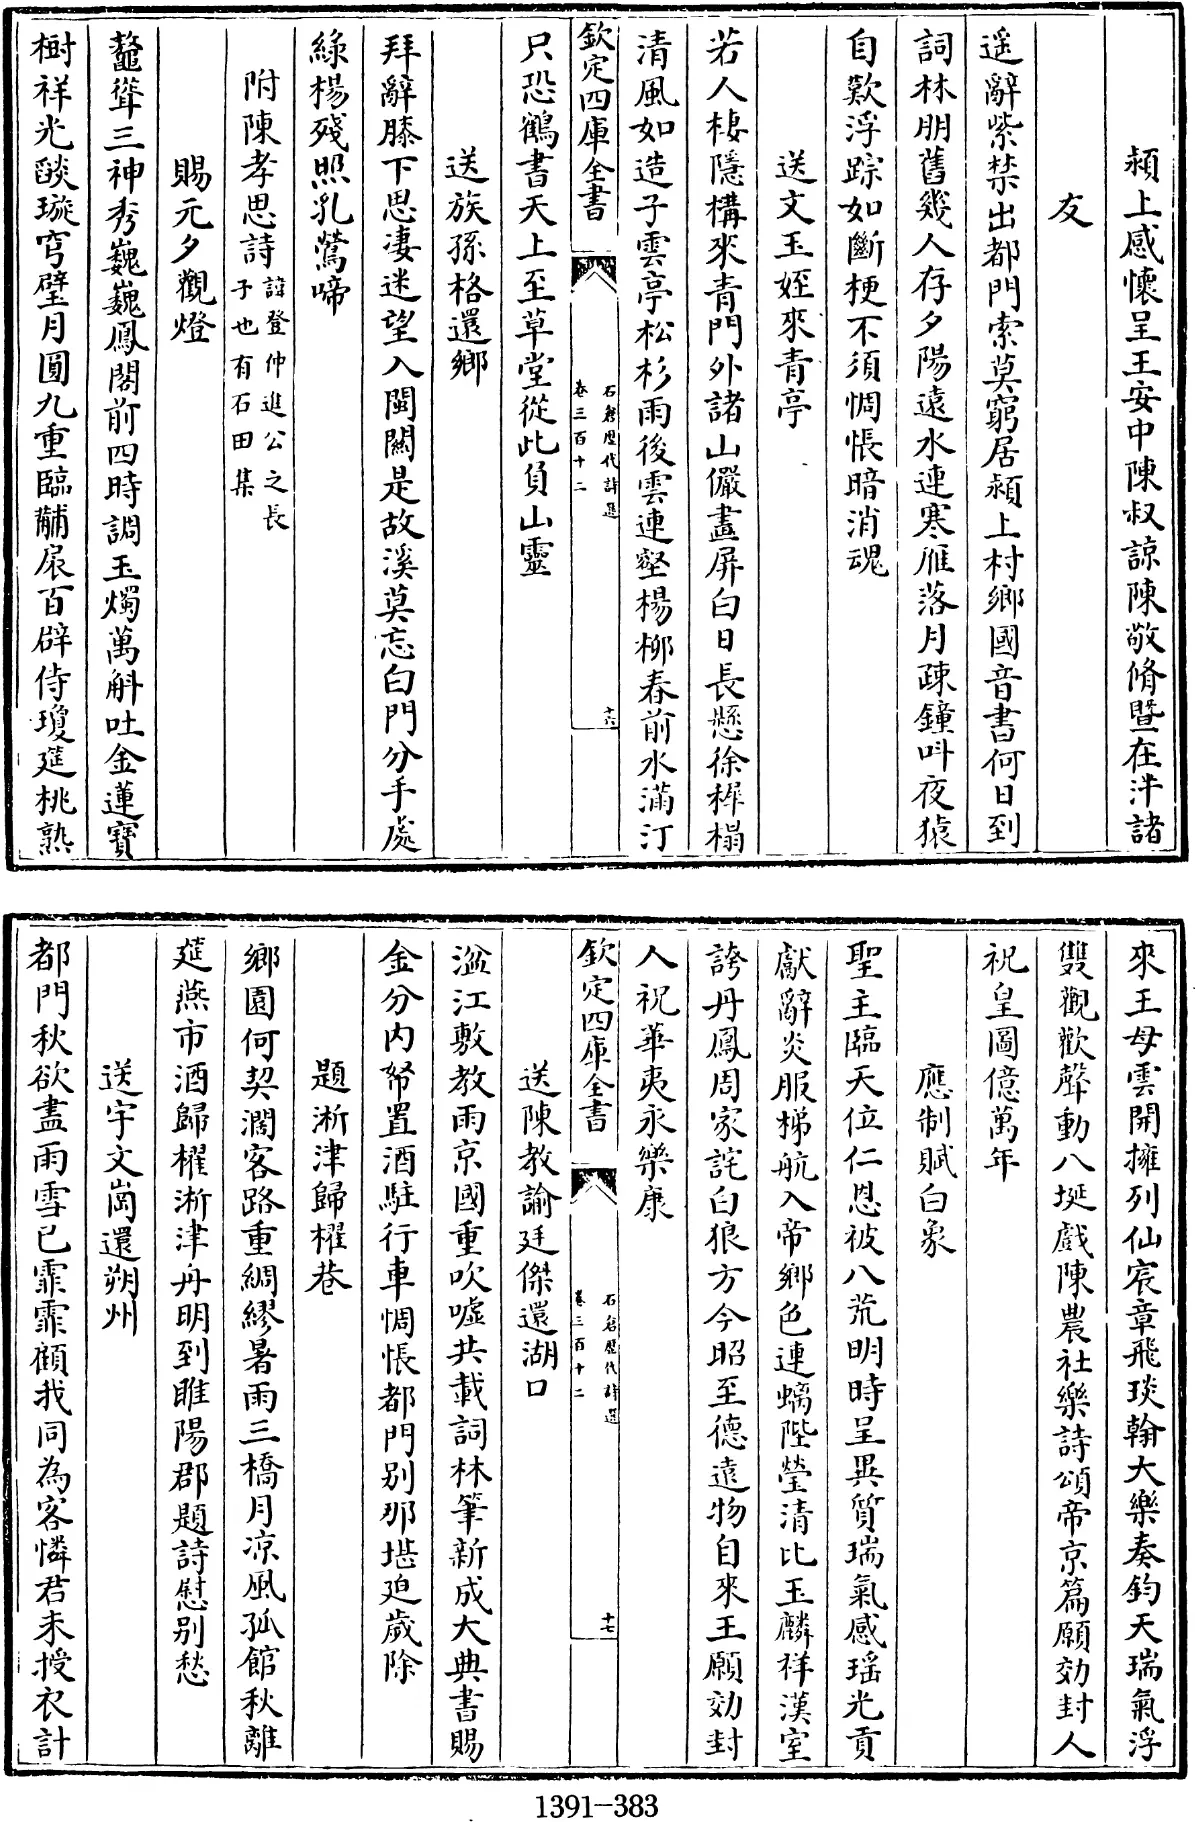 頴上感懷呈王安中陳叔諒陳敬脩暨在泮諸
友
遥辭紫禁出都門索莫窮居頴上村鄉國音書何日到
詞林朋舊幾人存夕陽遠水連寒雁落月疎鐘呌夜猿
自歎浮踪如斷梗不須惆悵暗消魂
送文玉姪來青亭
若人棲隱構來青門外諸山儼畫屏白日長懸徐穉榻
清風如造子雲亭松杉雨後雲連壑楊柳春前水滿汀
欽定四庫全書
石倉歴代詩選
卷三百十二
十六
只恐鶴書天上至草堂從此負山靈
送族孫格還鄉
拜辭膝下思凄迷望入閩關是故溪莫忘白門分手處
綠楊殘照乳鶯啼
附陳孝思詩諱登仲進公之長
子也有石田集
賜元夕觀燈
鼇聳三神秀巍巍鳳閣前四時調玉燭萬斛吐金蓮寶
樹祥光燄璇穹璧月圓九重臨黼扆百辟侍瓊筵桃熟
來王母雲開擁列仙宸章飛琰翰大樂奏鈞天瑞氣浮
雙觀歡聲動八埏戲陳農社樂詩頌帝京篇願効封人
祝皇圖億萬年
應制賦白象
聖主臨天位仁恩被八荒明時呈異質瑞氣感瑶光貢
獻辭炎服梯航入帝鄉色連螭陛瑩清比玉麟祥漢室
誇丹鳳周家詫白狼方今昭至德遠物自來王願効封
人祝華夷永樂康
欽定四庫全書
石倉歴代詩選
卷三百十二
十七
送陳教諭廷傑還湖口
湓江敷教雨京國重吹噓共載詞林筆新成大典書賜
金分内帑置酒駐行車惆悵都門别那堪迫歲除
題淅津歸櫂巷
鄉園何契濶客路重綢繆暑雨三橋月凉風孤館秋離
筵燕市酒歸櫂淅津舟明到睢陽郡題詩慰别愁
送宇文崗還朔州
都門秋欲盡雨雪已霏霏顧我同為客憐君未授衣計
1391-383